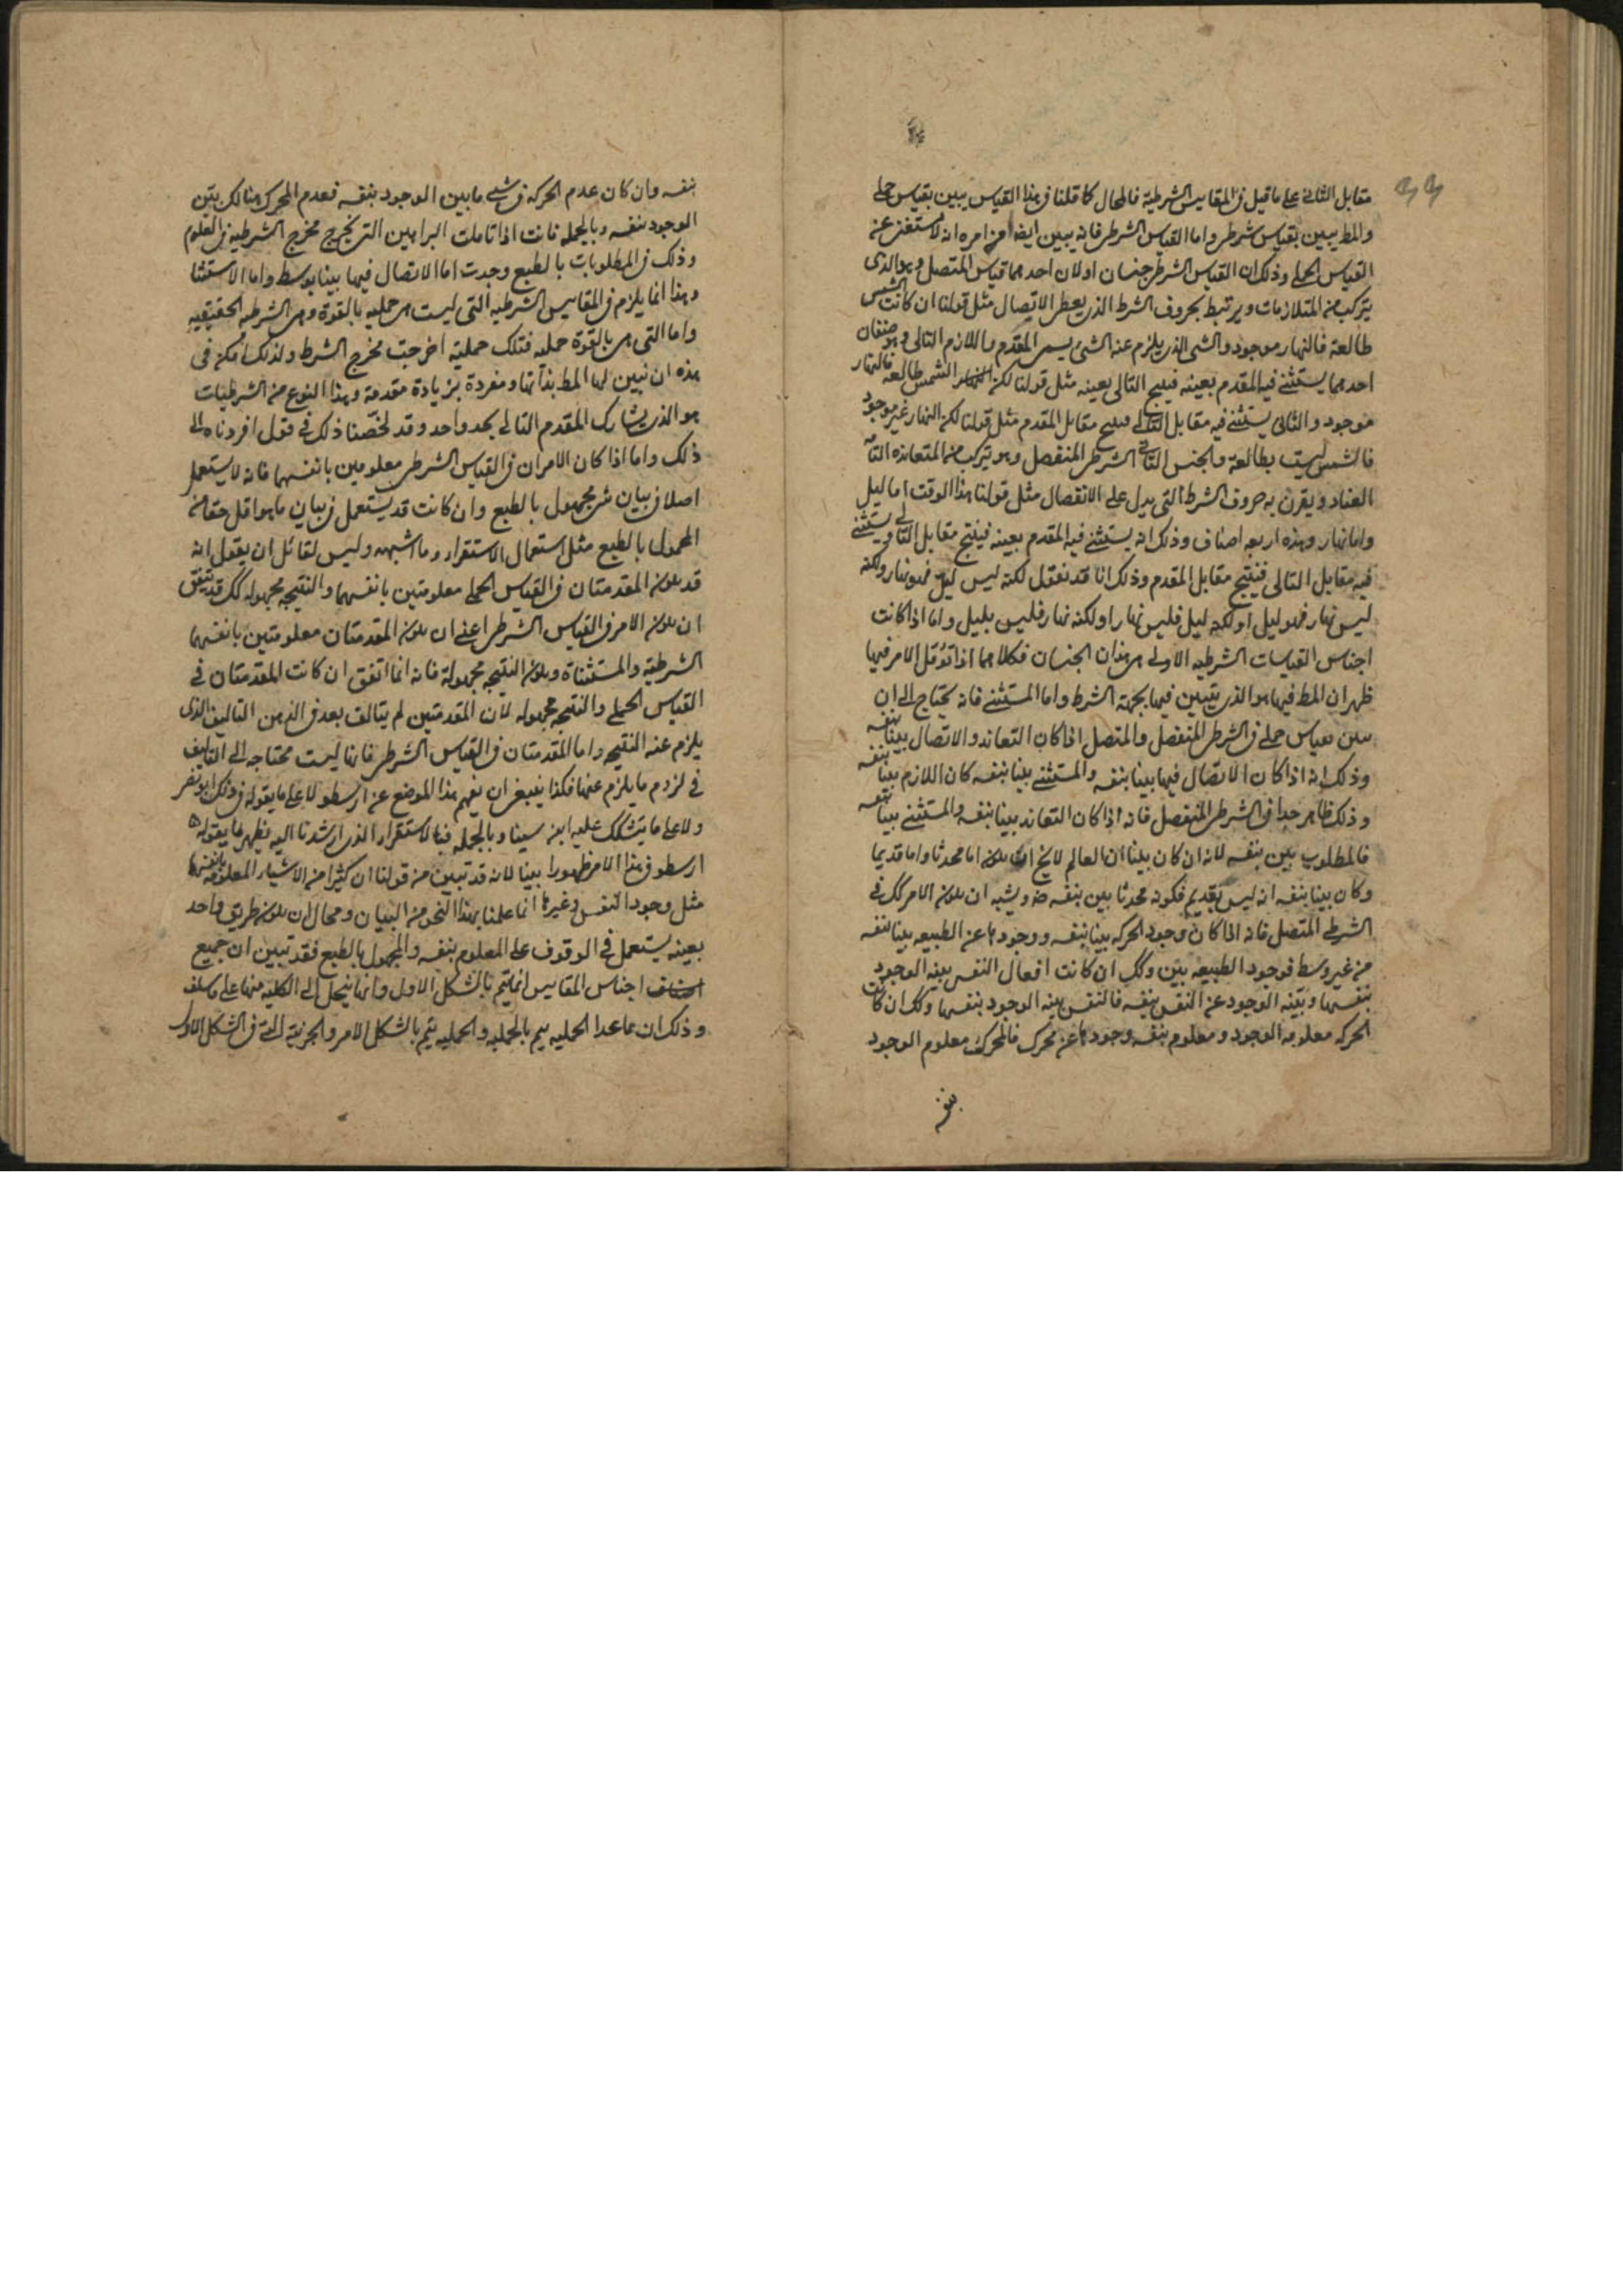 مقابل الثانى على ما قيل فى المقاييس الشرطية فالمحال كما قلنا فى هذا القياس يبين بقياس حملى
والمط يبين بقياس شرطى واما القياس الشرطى فانه يبين ايضا من امره انه لا يستغنى عنه
القياس الحملى وذلك ان القياس الشرطى جنسان اولان احدهما قياس المتصل وهو الذى
يتركب من المتلازمات ويرتبط بحروف الشرط الذى يعطى الاتصال مثل قولنا ان كانت الشمس
طالعة فالنهار موجود والشى الذى يلزم عنه الشى يسمى المقدم واللازم التالى وهو صنفان
احدهما يستثنى فيه المقدم بعينه فينتج التالى بعينه مثل قولنا لكن الشمس طالعة فالنهار
موجود والثانى يستثنى فيه مقابل التالى فينتج مقابل المقدم مثل قولنا لكن النهار غير موجود
فالشمس ليست بطالعة والجنس الثانى الشرطى المنفصل وهو يتركب من المتعاندة التامة
العناد ويقرن به حروف الشرط التى يدل على الانفصال مثل قولنا هذا الوقت اما ليل
واما نهار وهذه اربعه اصناف وذلك انه يستثنى فيه المقدم بعينه فينتج مقابل التالى ويستثنى
فيه مقابل التالى فينتج مقابل المقدم وذلك انا قد نقول لكنه ليس ليل فهو نهار ولكنه
ليس نهار فهو ليل او لكنه ليل فليس نهار او لكنه نهار فليس بليل واما اذا كانت
اجناس القياسات الشرطيه الاولى هى هذان الجنسان فكلاهما اذا تؤمل الامر فيها
ظهر ان المط فيها هو الذى يتبين فيها بجهة الشرط واما المستثنى فانه يحتاج الى ان
يبين بقياس حملى فى الشرطى المنفصل والمتصل اذا كان التعاند والاتصال بينا بنفسه
وذلك انه اذا كان الاتصال فيها بينا بنفسه والمستثنى بينا بنفسه كان اللازم بينا بنفسه
وذلك ظاهر جدا فى الشرطى المنفصل فانه اذا كان التعاند بينا بنفسه والمستثنى بينا بنفسه
فالمطلوب بين بنفسه لانه ان كان بينا ان العالم لا يخ ان يكون اما محدثا واما قديما
وكان بينا بنفسه انه ليس بقديم فكونه محدثا بين بنفسه ضرو يشبه ان يكون الامر كك فى
الشرطى المتصل فانه اذا كان وجود الحركه بينا بنفسه ووجودها عن الطبيعه بينا بنفسه
من غير وسط فوجود الطبيعه بين وكك ان كانت افعال النفس بينه الوجود
بنفسها وبينه الوجود عن النفس بنفسه فالنفس بينه الوجود بنفسها وكك ان كانت
الحركه معلومه الوجود ومعلوم بنفسه وجودها عن محرك فالمحرك معلوم الوجود
بنفسه
بنفسه وان كان عدم الحركه فى شى ما بين الوجود بنفسه فعدم المحرك هنالك بين
الوجود بنفسه وبالجمله فانت اذا تاملت البراهين التى تخرج مخرج الشرطيه فى العلوم
وذلك فى المطلوبات بالطبع وجدت اما الاتصال فيها بينا بوسط واما الاستثنا
وهذا انما يلزم فى المقاييس الشرطيه التى ليست هى حمليه بالقوة وهى الشرطيه الحقيقيه
واما التى هى بالقوة حمليه فتلك حملية اخرجت مخرج الشرط ولذلك امكن فى
هذه ان تبين لها المط بذاتها ومفردة بزيادة مقدمة وهذا النوع من الشرطيات
هو الذى يشارك المقدم التالى بحد واحد وقد لخصنا ذلك فى قول افردناه الى
ذلك واما اذا كان الامران فى القياس الشرطى معلومين بانفسهما فانه لا يستعمل
اصلا فى بيان شى مجهول بالطبع وان كانت قد يستعمل فى بيان ما هو اقل حقا من
المجهول بالطبع مثل استعمال الاستقراء وما اشبهه وليس لقائل ان يقول انه
قد يكون المقدمتان فى القياس الحملى معلومتين بانفسهما والنتيجه مجهوله كك قد يتفق
ان يكون الامر فى القياس الشرطى اعنى ان يكون المقدمتان معلومتين بانفسهما
الشرطية والمستثناة ويكون النتيجه مجهولة فانه انما اتفق ان كانت المقدمتان فى
القياس الحملى والنتيجه مجهوله لان المقدمتين لم يتالف بعد فى الذهن التاليف الذى
يلزم عنه النتيجه واما المقدمتان فى القياس الشرطى فانها ليست محتاجه الى التاليف
فى لزوم ما يلزم عنها فكذا ينبغى ان يفهم هذا الموضع عن ارسطو لا على ما يقوله فى ذلك ابو نصر
ولا على ما يتشكك عليه ابن سينا وبالجمله فبالاستقراء الذى ارشدنا اليه يظهر ما يقوله
ارسطو فى هذا الامر ظهورا بينا لانه قد تبين من قولنا ان كثيرا من الاشياء المعلومة بانفسها
مثل وجود النفس وغيرها انما علمنا بهذا النحو من البيان ومحال ان يكون طريق واحد
بعينه يستعمل فى الوقوف على المعلوم بنفسه والمجهول بالطبع فقد تبين ان جميع
اجناس المقاييس انما يتم بالشكل الاول وانها ينحل الى الكليه منها على ما سلف
وذلك ان ما عدا الحمليه يتم بالحمليه والحمليه يتم بالشكل الامر والجزئية التى فى الشكل الاول